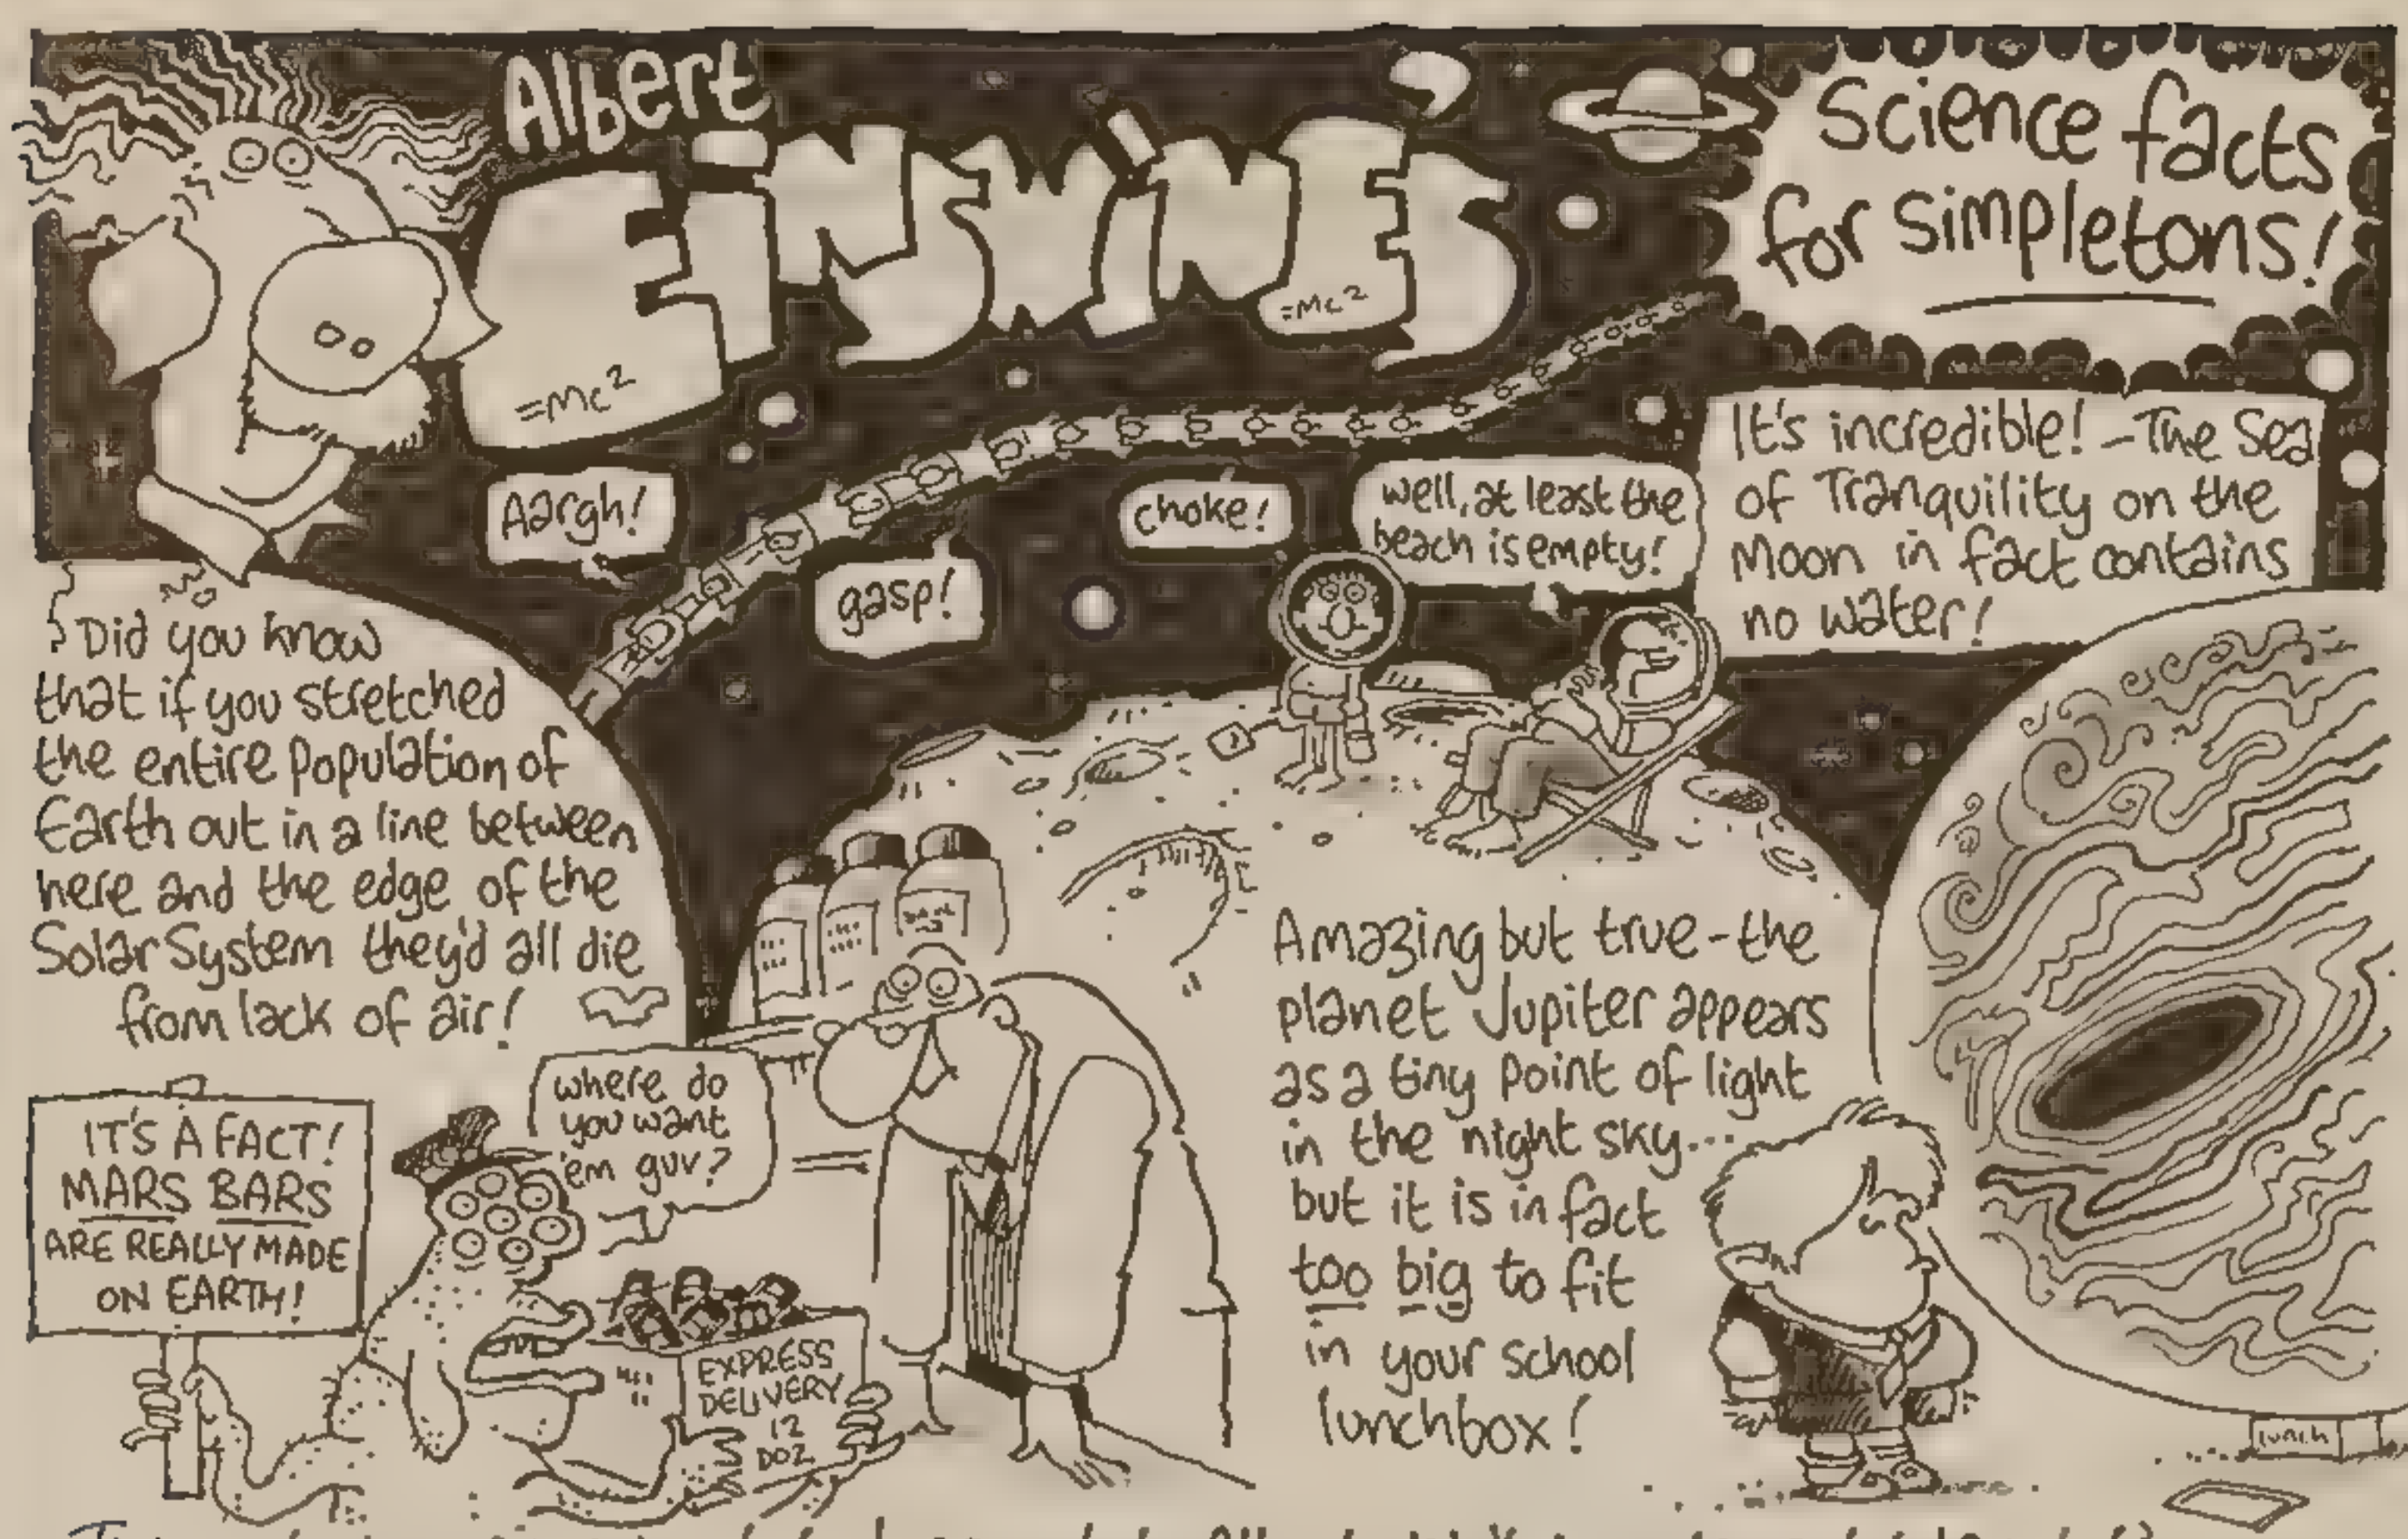 Albert
EiNSWiNES
=Mc²
=Mc²
Science facts
for simpletons!
Aargh!
gasp!
choke!
well, at least the
beach is empty!
It's incredible! - The Sea
of Tranquility on the
Moon in fact contains
no water!
Did you know
that if you stretched
the entire population of
Earth out in a line between
here and the edge of the
Solar System they'd all die
from lack of air!
Amazing but true - the
planet Jupiter appears
as a tiny point of light
in the night sky...
but it is in fact
too big to fit
in your school
lunchbox!
where do
you want
'em guv?
IT'S A FACT!
MARS BARS
ARE REALLY MADE
ON EARTH!
EXPRESS
DELIVERY
12
DOZ
lunch